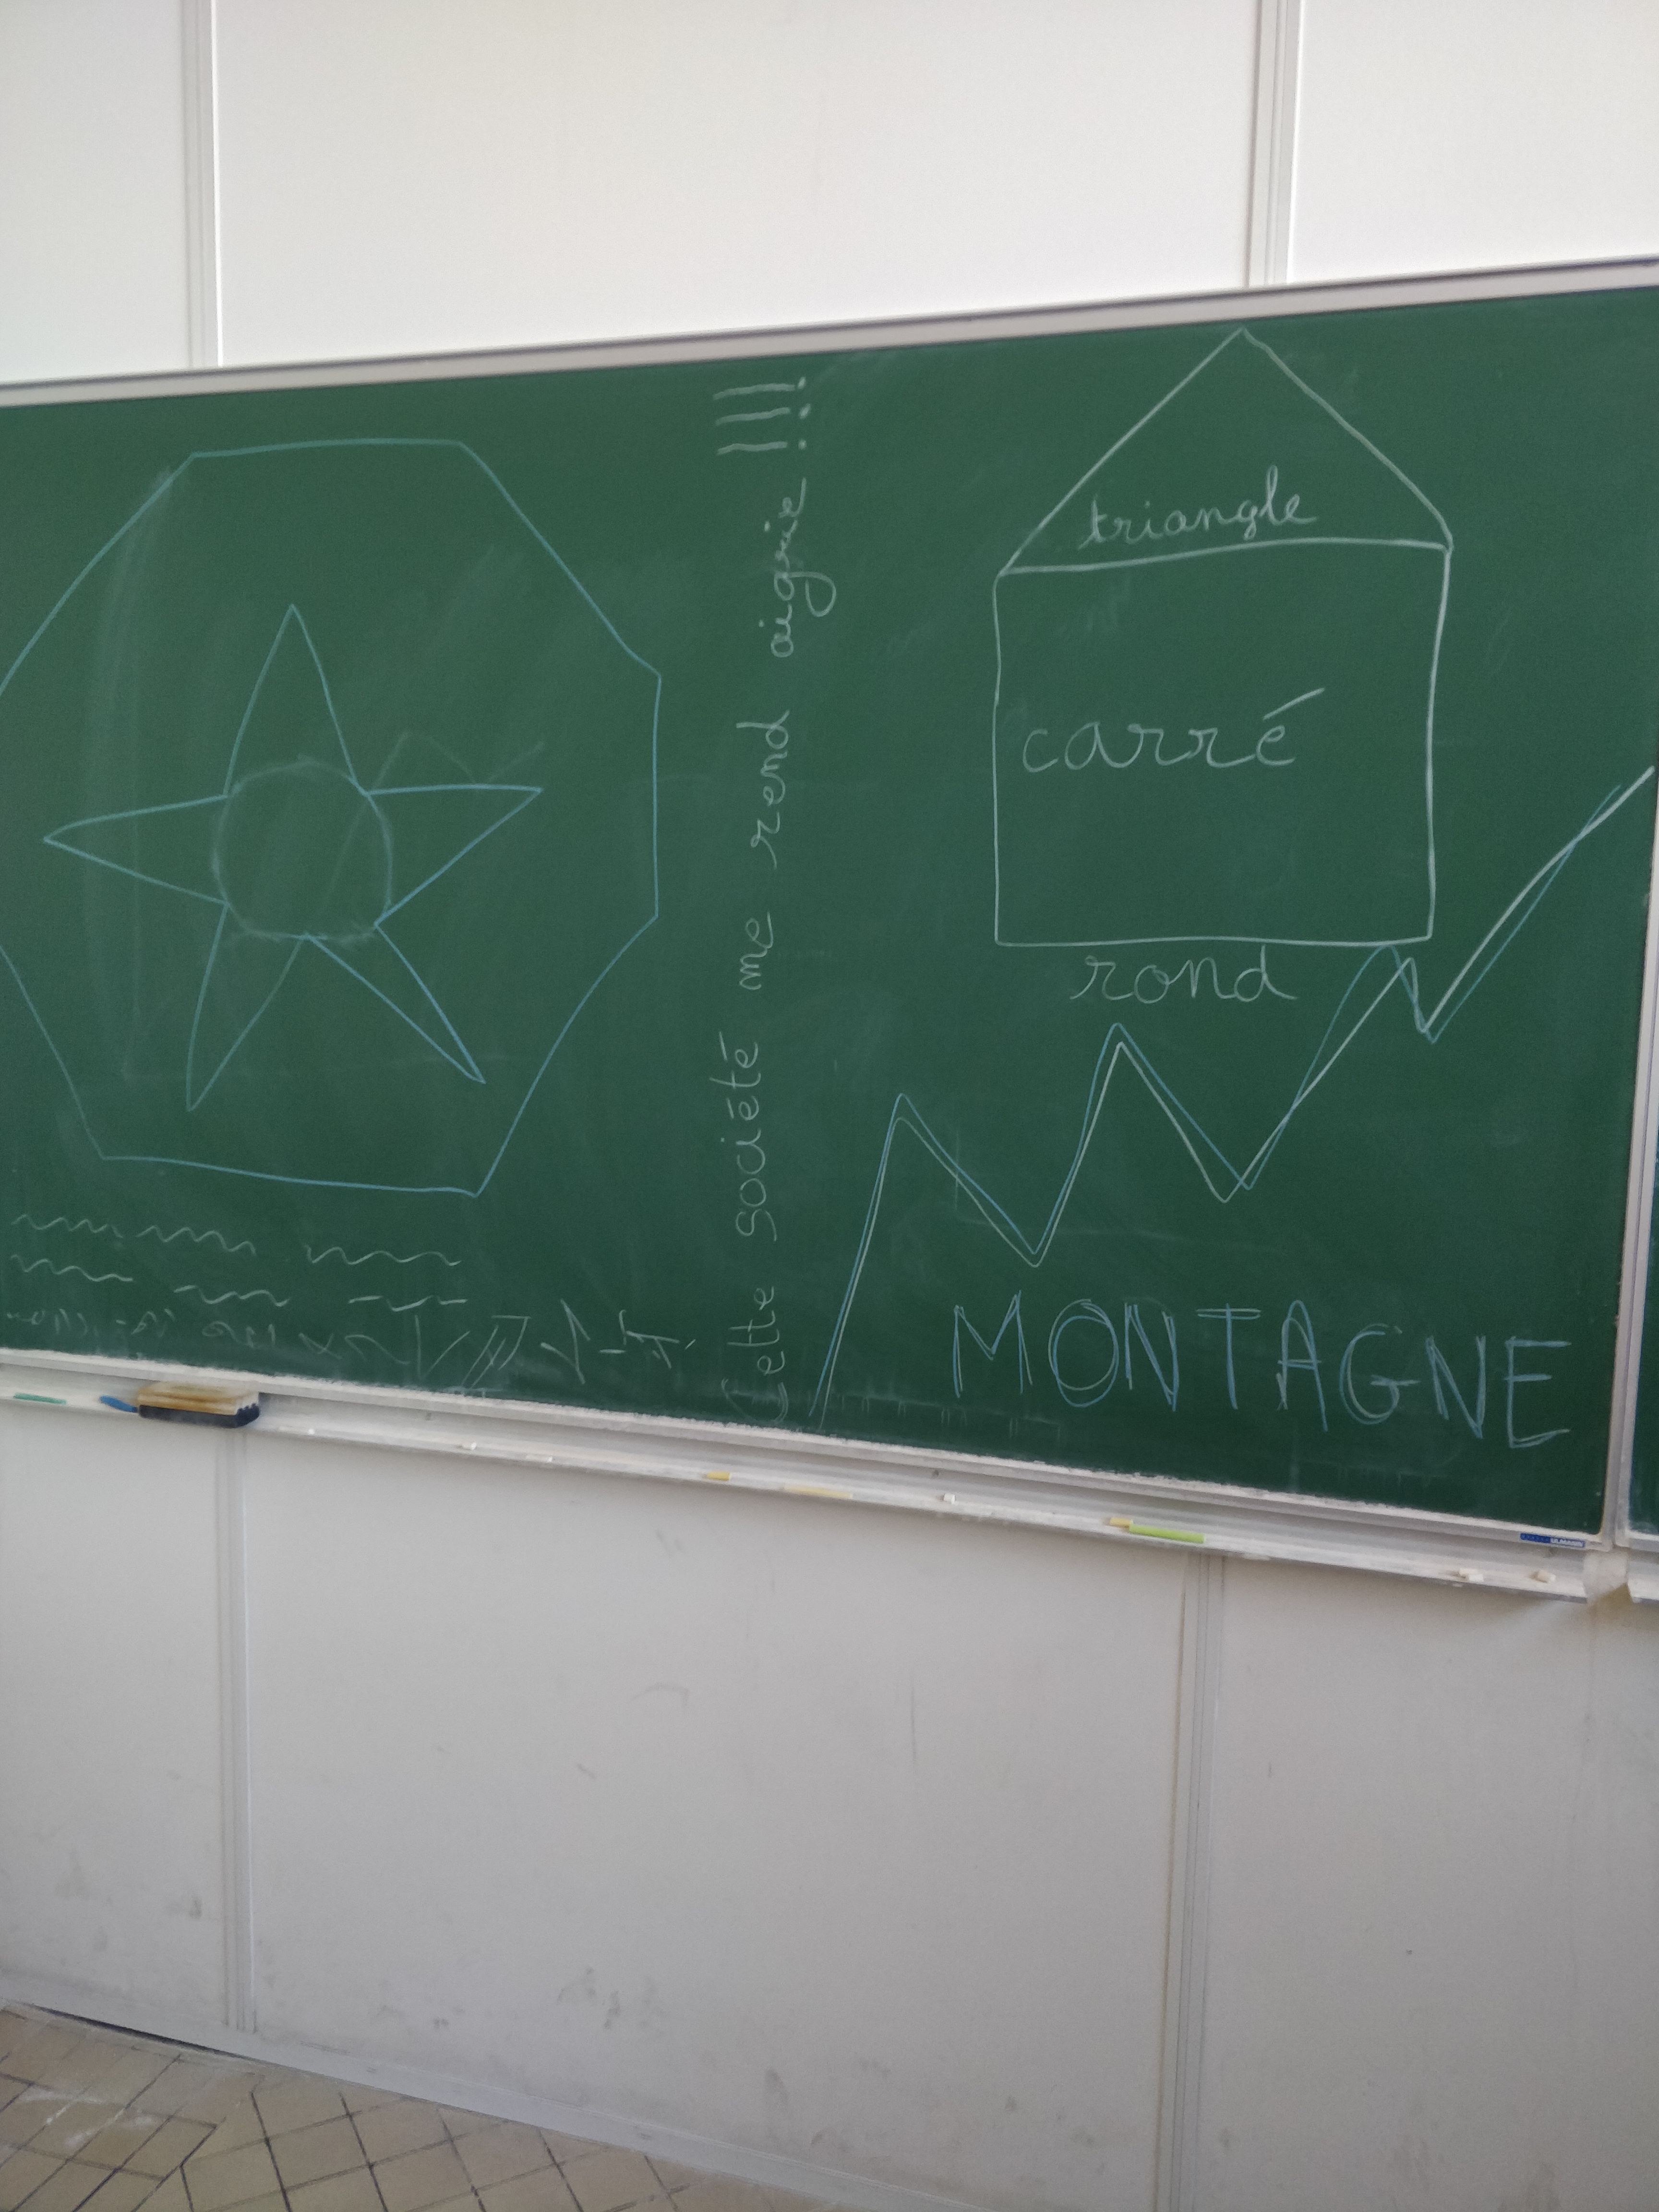 Cette société me rend aigrie !!!
triangle
carré
rond
MONTAGNE
ULMANN